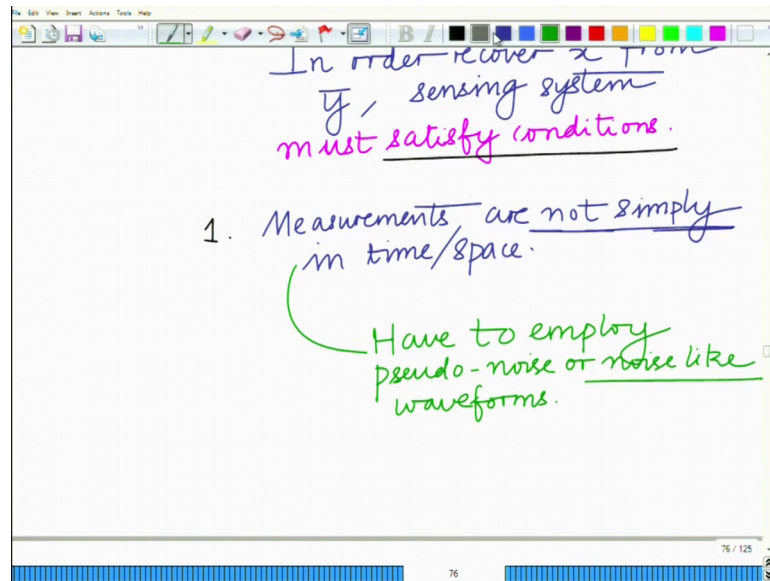 File Edit View Insert Actions Tools Help
B I
In order recover x from
y, sensing system
must satisfy conditions.
1. Measurements are not simply
in time/space.
Have to employ
pseudo-noise or noise like
waveforms.
76 / 125
76